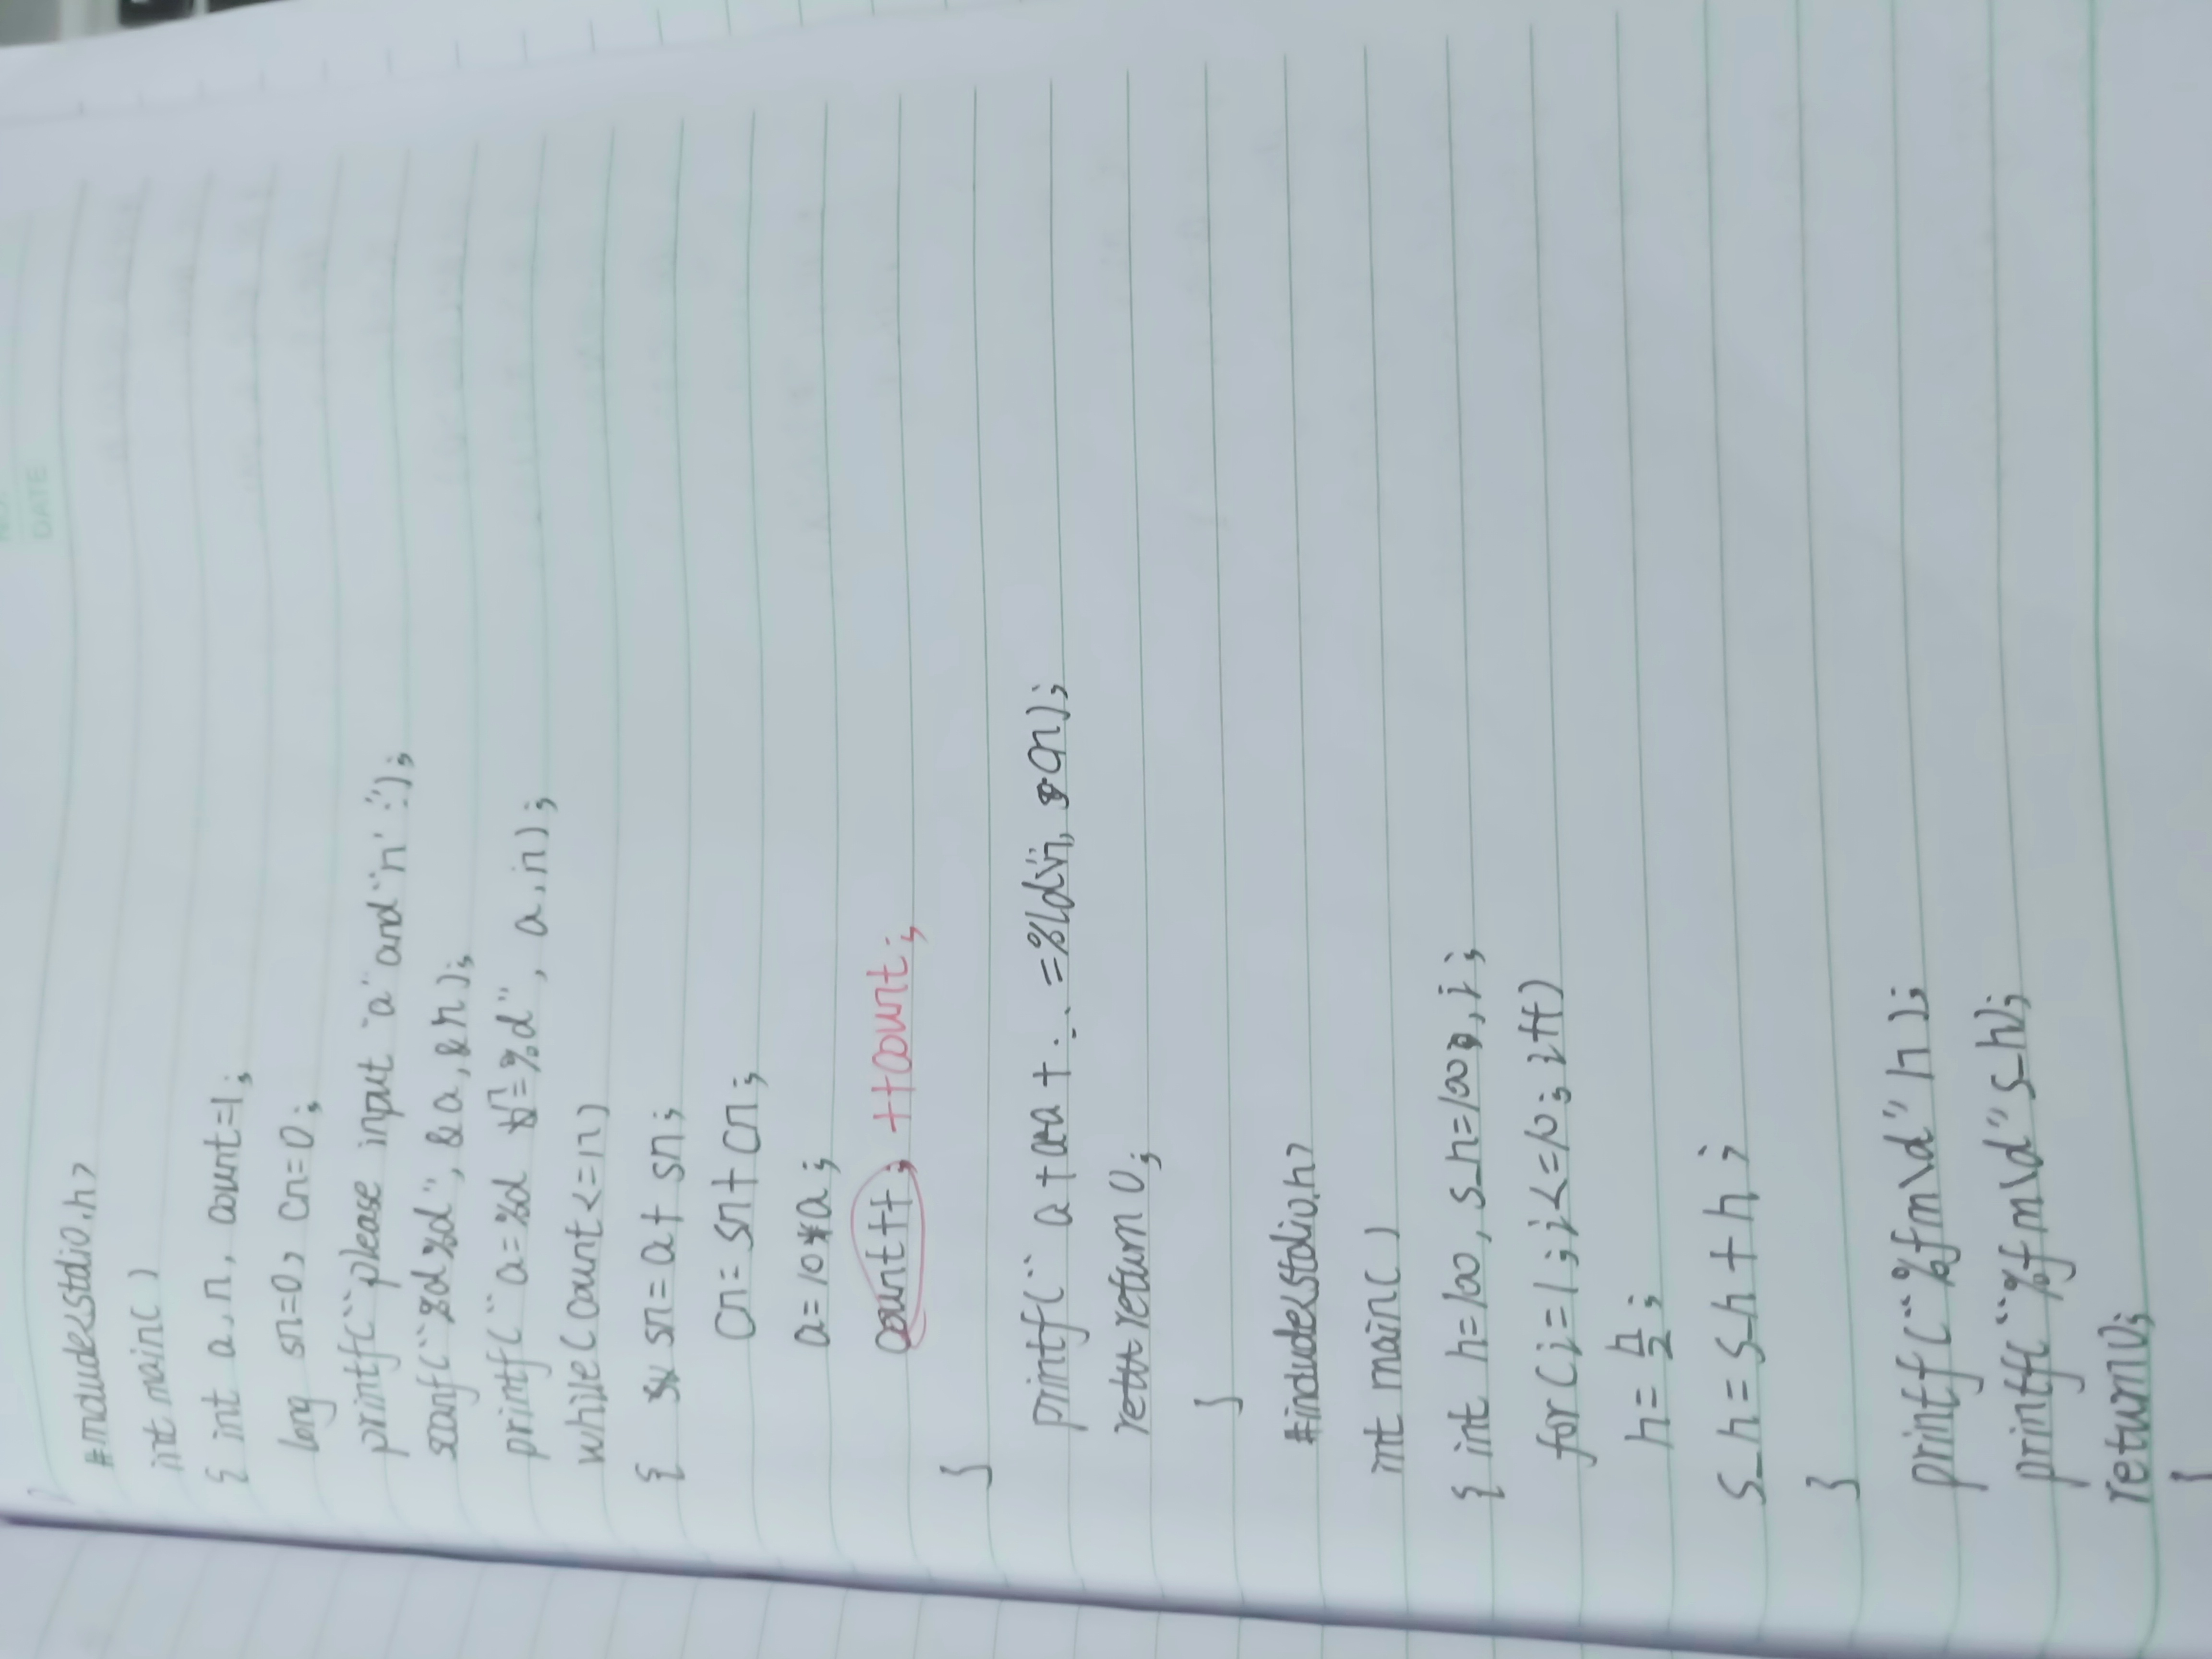 DATE
#include<stdio.h>
int main()
{ int a, n, count=1;
long sn=0, cn=0;
printf("please input "a" and "n":");
scanf("%d%d", &a, &n);
printf("a=%d n=%d", a, n);
while(count<=n)
{ sn=a+sn;
cn=sn+cn;
a=10*a;
count++; ++count;
}
printf("a+aa+...=%ld\n", cn);
return 0;
}
#include<stdio.h>
int main()
{ int h=100, s_h=100, i;
for(i=1;i<=10;i++)
h=h/2;
s_h=s_h+h;
}
printf("%fm\d"h);
printf("%fm\d"s_h);
return0;
}